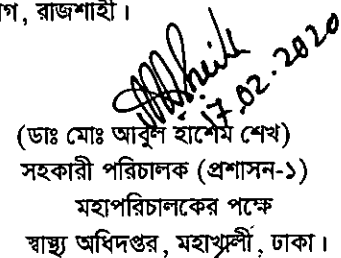 গ, রাজশাহী।
17.02.2020
(ডাঃ মোঃ আবুল হাশেম শেখ)
সহকারী পরিচালক (প্রশাসন-১)
মহাপরিচালকের পক্ষে
স্বাস্থ্য অধিদপ্তর, মহাখালী, ঢাকা।